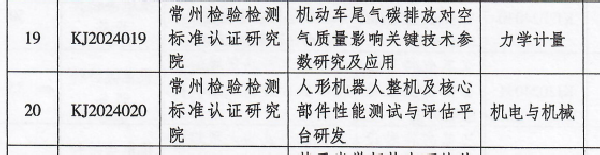 19
KJ2024019
常州检验检测
标准认证研究
院
机动车尾气碳排放对空
气质量影响关键技术参
数研究及应用
力学计量
20
KJ2024020
常州检验检测
标准认证研究
院
人形机器人整机及核心
部件性能测试与评估平
台研发
机电与机械